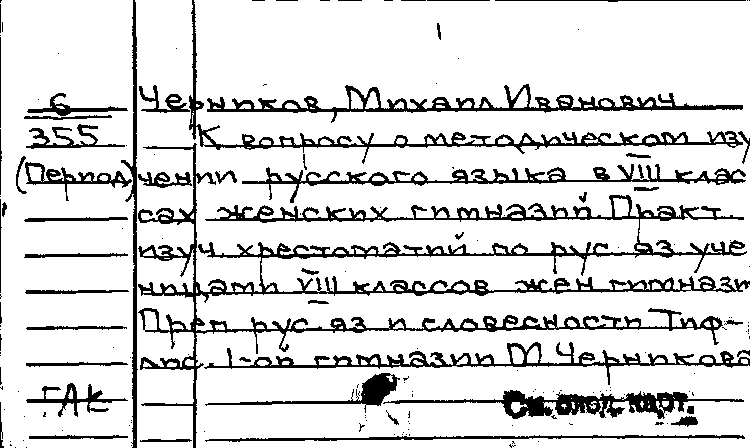 6 Черников, Михаил Иванович.
355 К вопросу о методическом изу
(Период) чении русского языка в VIII клас
сах женских гимназий. Практ.
изуч. хрестоматий по рус. яз. уче
ницами VIII классов жен. гимназии
Преп. рус. яз. и словесности Тиф-
лис. 1-ой гимназии М. Черникова
ГАК См. след. карт.